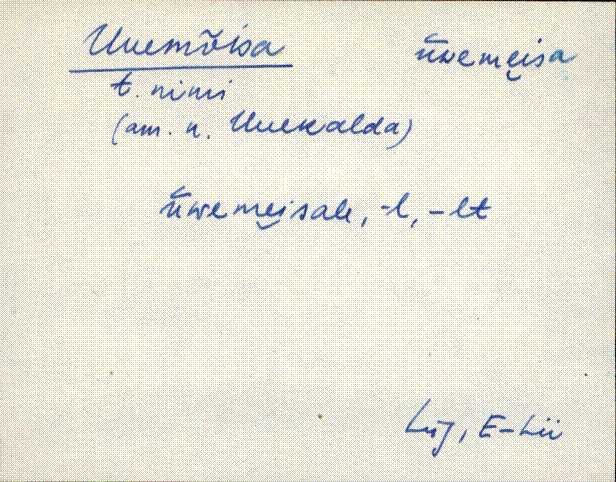 Uuemõisa ūwemei̯sa
t. nimi
(am. n. Uuekalda)
ūwemei̯sale, -l, -lt
Lüg, E-Lii